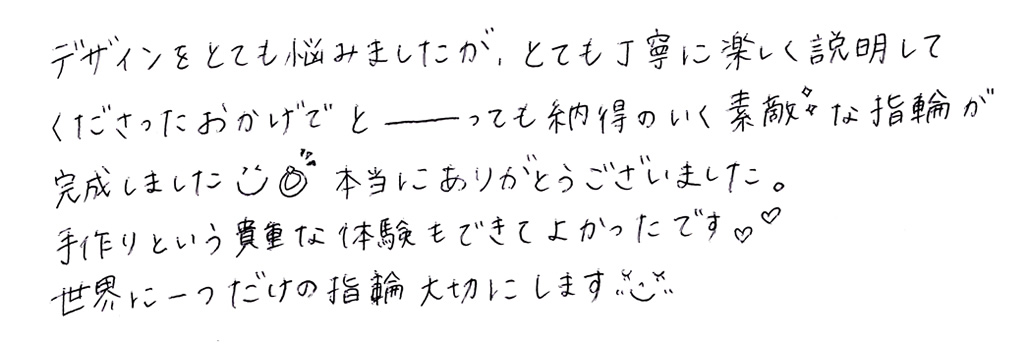 デザインをとても悩みましたが、とても丁寧に楽しく説明して
くださったおかげでと―――っても納得のいく素敵✧な指輪が
完成しました☺💍本当にありがとうございました。
手作りという貴重な体験もできてよかったです♡♡
世界に一つだけの指輪大切にします